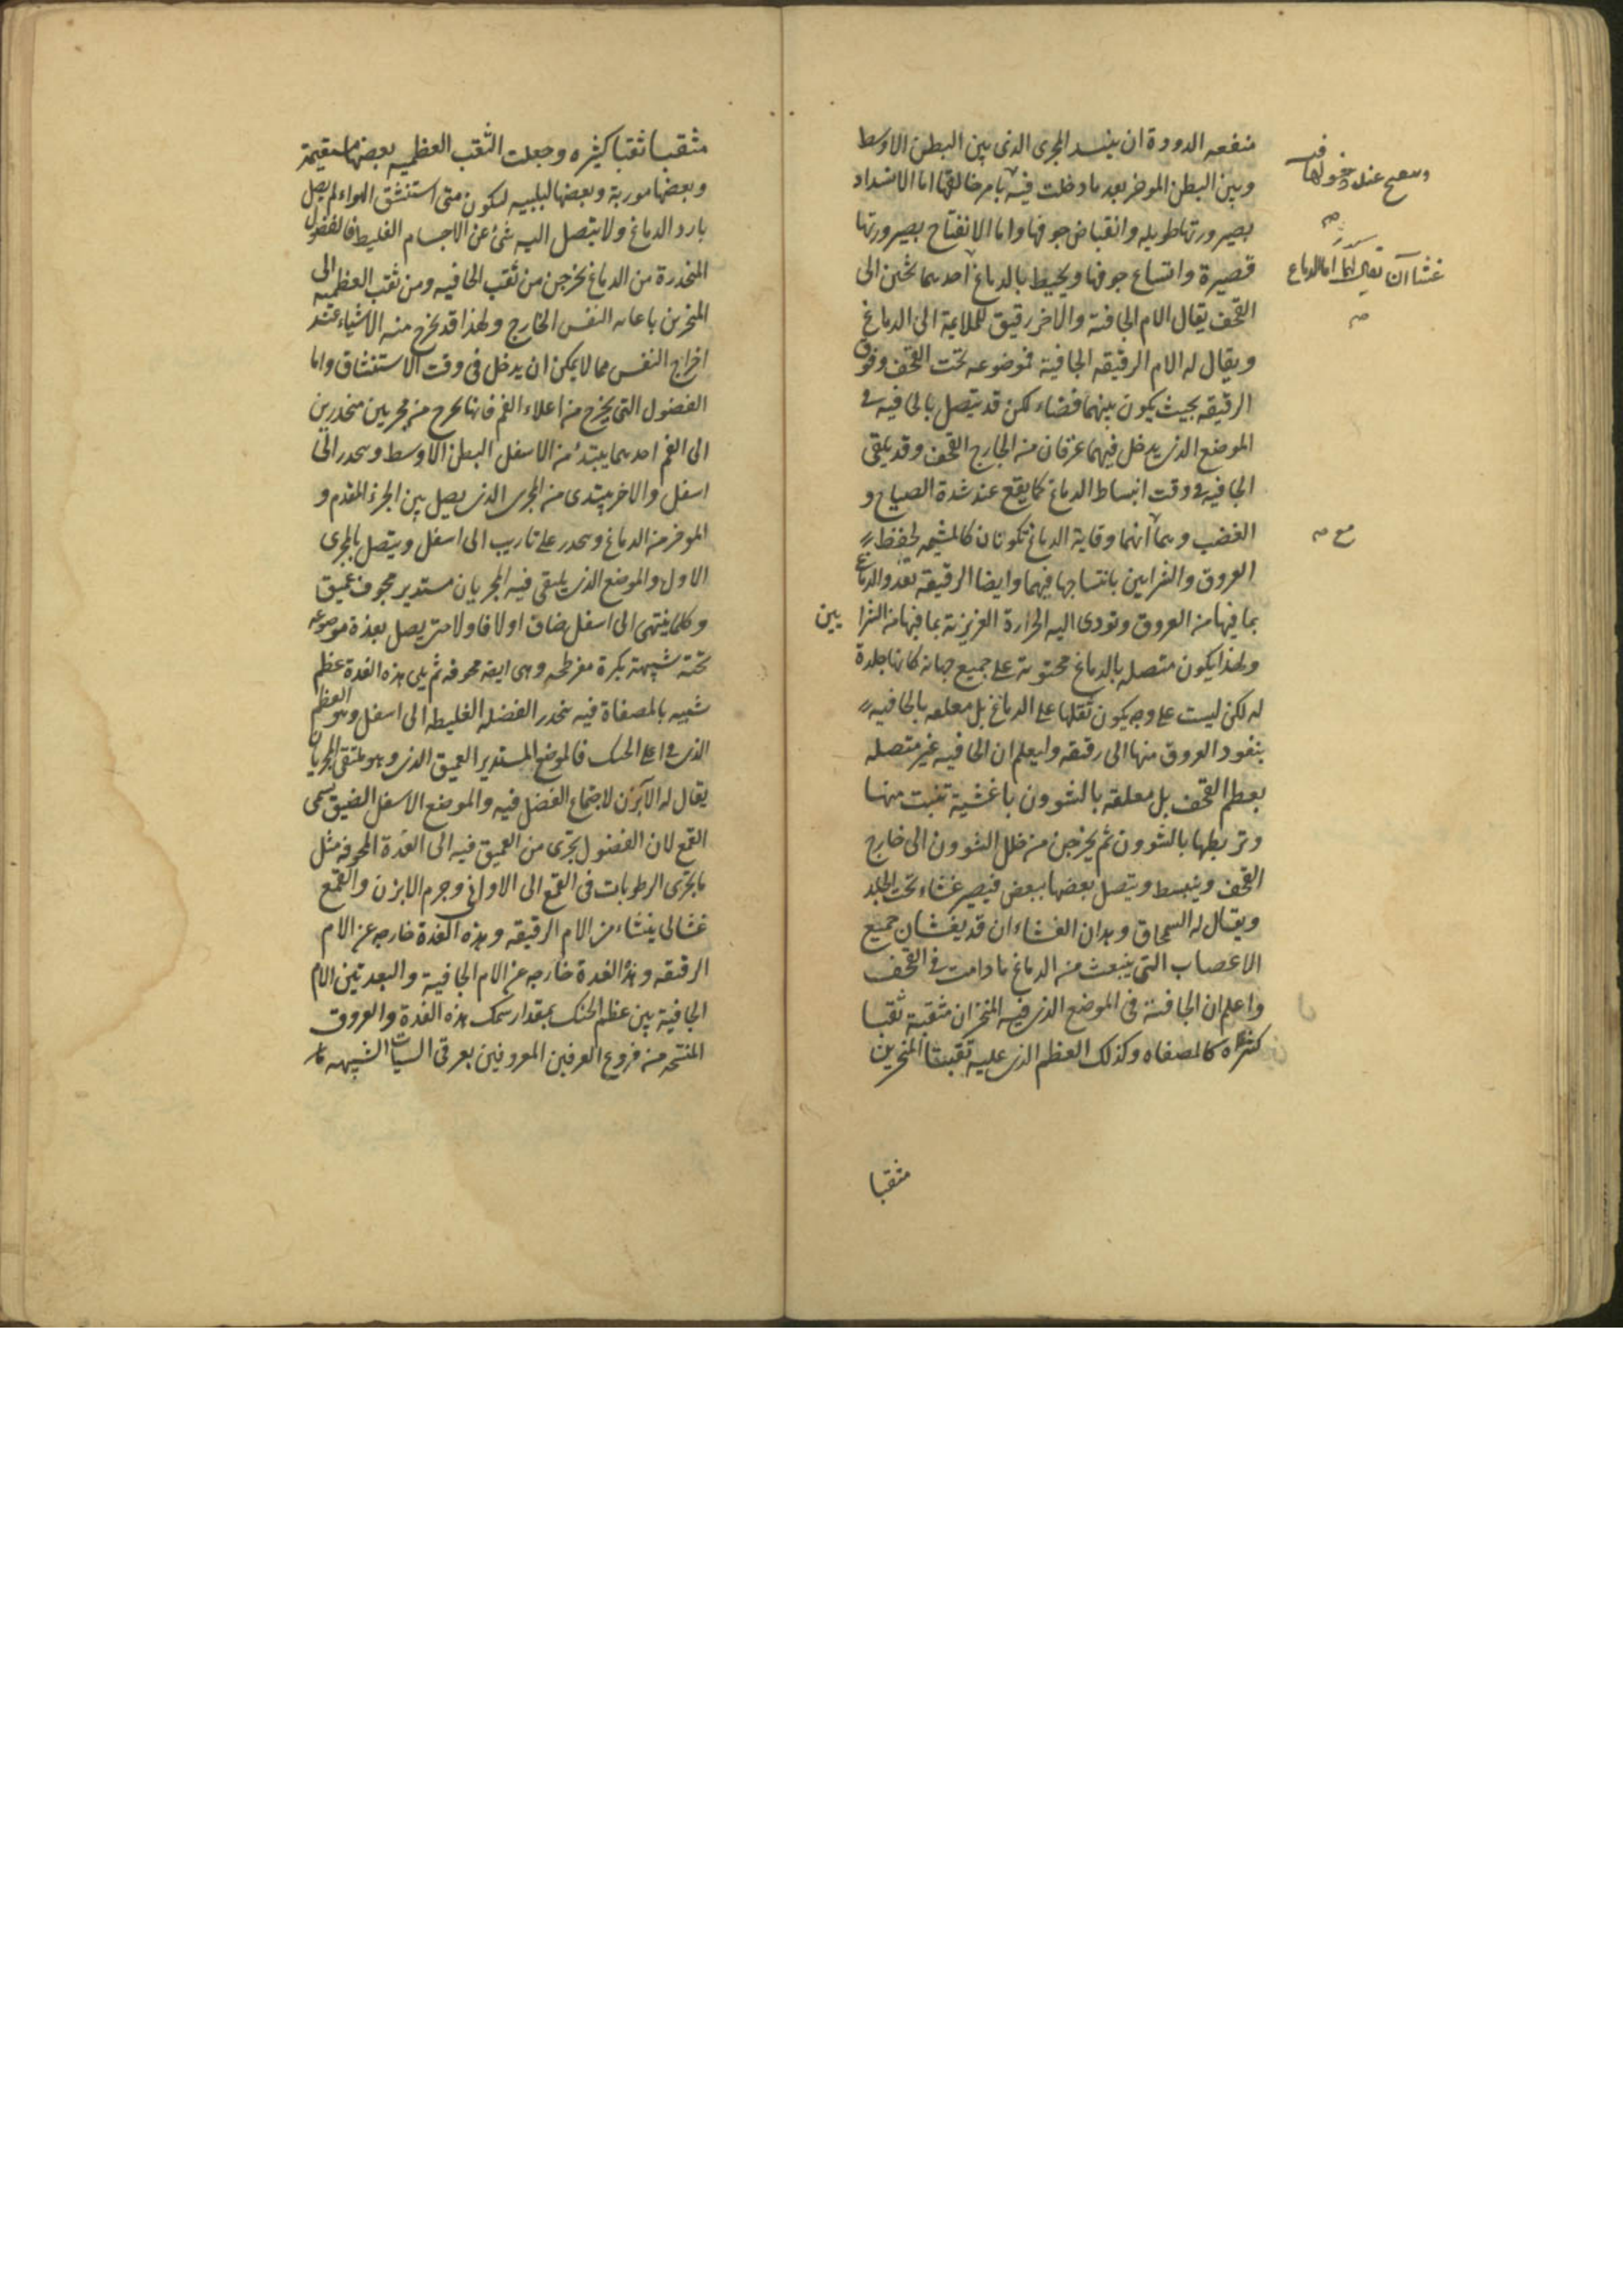 منفعه الدودة ان ينسد المجرى الذى بين البطن الاوسط
وبين البطن الموخر بعد ما دخلت فيه بامر خالقها اما الانسداد
بصيرورتها طويله وانقباض جوفها واما الانفتاح بصيرورتها
قصيرة واتساع جوفها ويحيط بالدماغ احدهما ثخين الى
القحف يقال الام الجافية والاخر رقيق للملاعية الى الدماغ
ويقال له الام الرقيقه الجافية فموضوعه تحت القحف وفوق
الرقيقه بحيث يكون بينهما فضاء لكن قد يتصل بالجافيه فى
الموضع الذى يدخل فيهما عرفان من الخارج القحف وقد يلقى
الجافيه فى وقت انبساط الدماغ كما يقع عند شدة الصياح و
الغضب وهما انهما وقاية الدماغ تكونان كالمشيمه لحفظ
العروق والشرايين بانتساجها فيهما وايضا الرقيقه تغذو الدماغ
بما فيها من العروق وتودى اليه الحرارة الغريزية بما فيها من الشرا يين
ولهذا يكون متصله بالدماغ محتوية على جميع جهاته كانها جلدة
له لكن ليست على وجه يكون ثقلها على الدماغ بل معلقه بالجافيه
بنفود العروق منها الى رقيقه وليعلم ان الجافيه غير متصله
بعظم القحف بل معلقه بالشوون باغشية تنبت منها
وتربطها بالشوون ثم يخرجن من خلل الشوون الى خارج
القحف وينبسط ويتصل بعضها ببعض فيصير غشاء تحت الجلد
ويقال له السمحاق وهدان الغشاءان قد يغشان جميع
الاعصاب التى ينبعث من الدماغ ما دامت فى القحف
واعلم ان الجافية فى الموضع الذى فيه المنخران مثقبة ثقبا
كثيره كالمصفاه وكذلك العظم الذى عليه ثقبتا المنخرين
مثقبا
عند دخولها فيه
غشاآن يقال لهما اما الدماغ
مع
مثقبا ثقبا كثيره وجعلت الثقب العظميه بعضها مستقيمة
وبعضها موربة وبعضها لبلبيه ليكون متى استنشق الهواء لم يصل
بارد الدماغ ولا يتصل اليه شئ عن الاجسام الغليظ فالفضول
المنحدرة من الدماغ يخرجن من ثقب الجافيه ومن ثقب العظميه الى
المنخرين باعانه النفس الخارج ولهذا قد يخرج منه الاشياء عند
اخراج النفس مما لا يمكن ان يدخل فى وقت الاستنشاق واما
الفضول التى يخرج من اعلاء الفم فانها يخرج من مجريين منحدرين
الى الفم احدهما يبتدئ من الاسفل البطن الاوسط وينحدر الى
اسفل والاخر يبتدى من المجرى الذى يصل بين الجزء المقدم و
الموخر من الدماغ وينحدر على تاريب الى اسفل ويتصل بالمجرى
الاول والموضع الذى يلتقى فيه المجريان مستدير مجوف عميق
وكلما ينتهى الى اسفل ضاق اولا فاولا حتى يصل بغدة موضوعه
تحته شبيهة بكرة مفرطحه وهى ايضه مجوفه ثم يلى هذه الغدة عظم
شبيه بالمصفاة فيه ينحدر الفضله الغليظه الى اسفل وهو العظم
الذى فى اعلى الحنك فالموضع المستدير العميق الذى وهو ملتقى المجريان
يقال له الابزن لاجتماع الفضل فيه والموضع الاسفل الضيق يسمى
القمع لان الفضول يجرى من العميق فيه الى الغدة المجوفه مثل
ما يجرى الرطوبات فى القمع الى الاوانى وجرم الابزن والقمع
غشائى ينشاء من الام الرقيقه وهذه الغدة خارجه عن الام
الرقيقه وهذه الغدة خارجه عن الام الجافية والبعد بين الام
الجافية بين عظم الحنك بمقدار سمك هذه الغدة والعروق
المنتسجه من فروع العرقين المعروفين بعرقى السبات الشبيهه